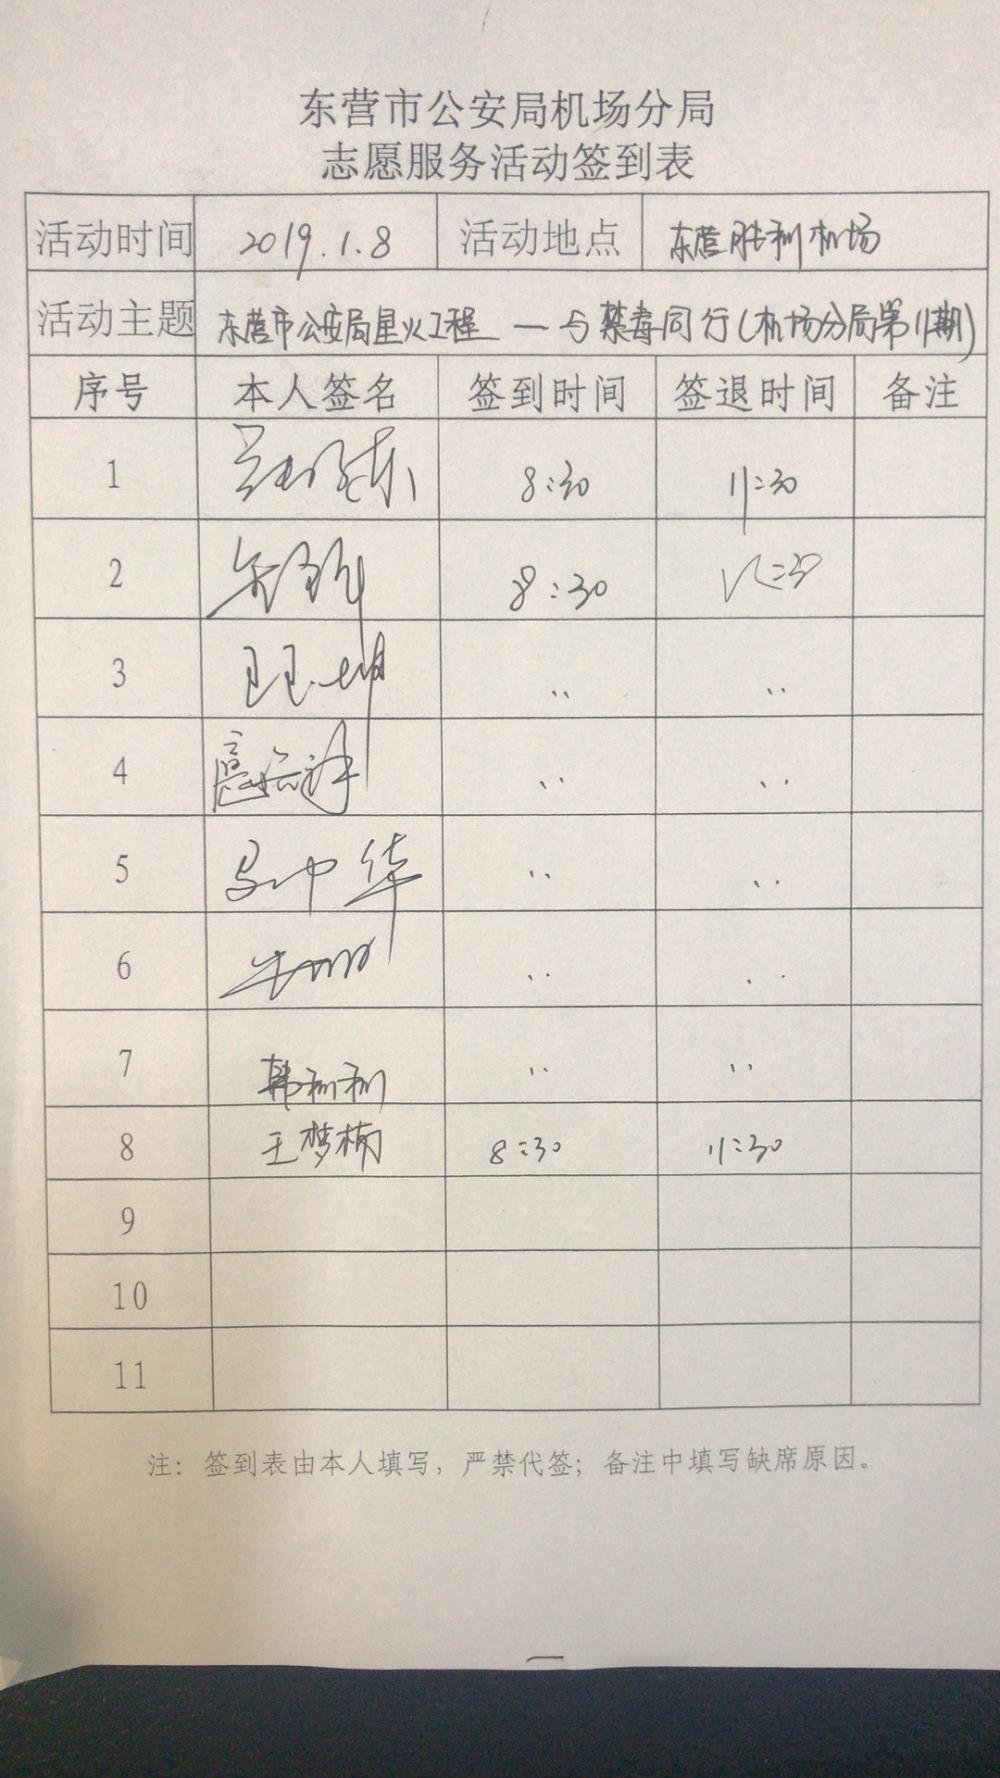 东营市公安局机场分局
志愿服务活动签到表
活动时间 2019.1.8 活动地点 东营胜利机场
活动主题 东营市公安局星火工程 — 与禁毒同行(机场分局第11期)
序号 本人签名 签到时间 签退时间 备注
1 8:30 11:30
2 8:30
3 ‥ ‥
4 ‥ ‥
5 马中华 ‥ ‥
6 ‥ ‥
7 韩利利 ‥ ‥
8 王梦楠 8:30 11:30
9
10
11
注：签到表由本人填写，严禁代签；备注中填写缺席原因。